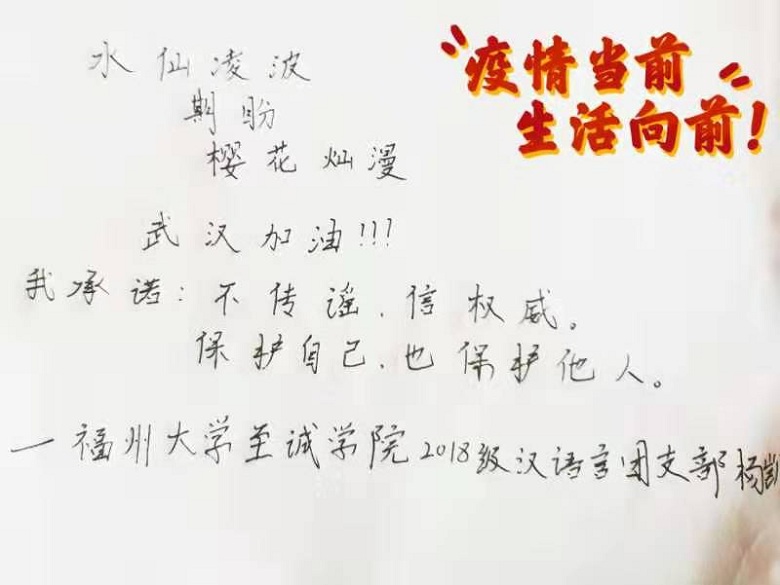 疫情当前
生活向前!
水仙凌波
期盼
樱花灿漫
武汉加油!!!
我承诺:不传谣、信权威。
保护自己、也保护他人。
一福州大学至诚学院2018级汉语言团支部杨凯